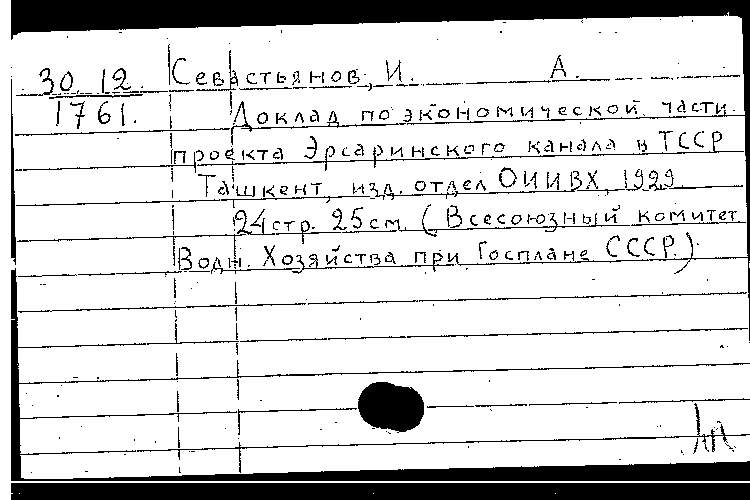 30.12. Севастьянов, И. А.
1761. Доклад по экономической части
проекта Эрсаринского канала в ТССР
Ташкент, изд. отдел ОИИВХ, 1929
24 стр. 25 см. (Всесоюзный комитет
Водн. Хозяйства при Госплане СССР.)